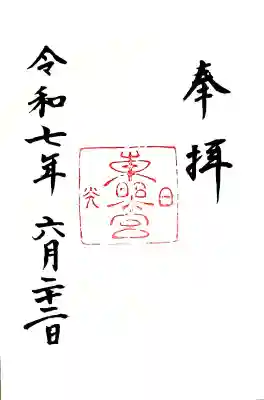 奉拝
日光
東照宮
令和七年 六月二十二日